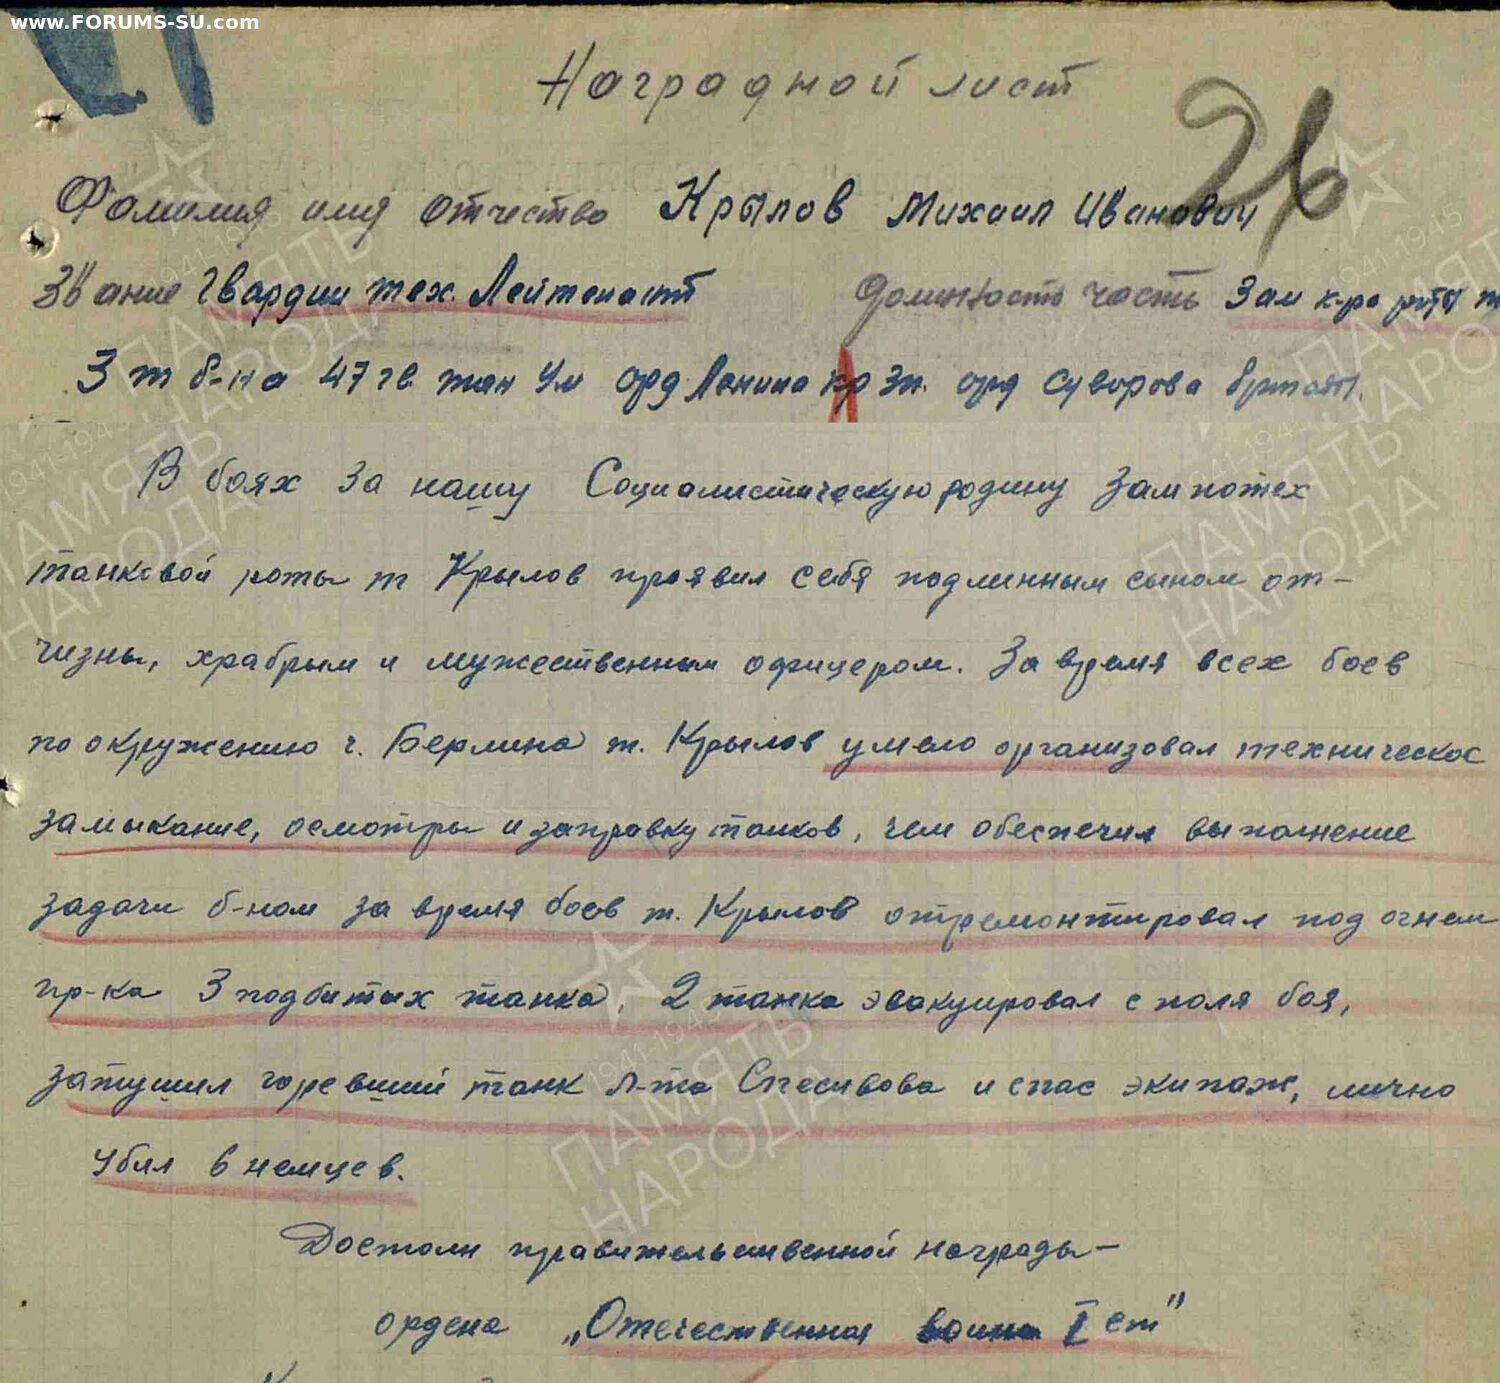 www.FORUMS-SU.com
Наградной лист
26
Фамилия имя отчество Крылов Михаил Иванович
Звание Гвардии тех. Лейтенант Должность часть Зам к-ра роты
3 т б-на 47 гв тан Ум орд Ленина кр Зн. орд Суворова бригады.
В боях за нашу Социалистическую родину Зампотех
танковой роты т Крылов проявил себя подлинным сыном от-
чизны, храбрым и мужественным офицером. За время всех боев
по окружению г. Берлина т. Крылов умело организовал техническое
замыкание, осмотры и заправку танков, чем обеспечил выполнение
задачи б-ном за время боев т. Крылов отремонтировал под огнем
пр-ка 3 подбитых танка, 2 танка эвакуировал с поля боя,
затушил горевший танк л-та Спесивова и спас экипаж, лично
убил 6 немцев.
Достоин правительственной награды –
ордена „Отечественная война I ст"
ПАМЯТЬ НАРОДА
1941-1945